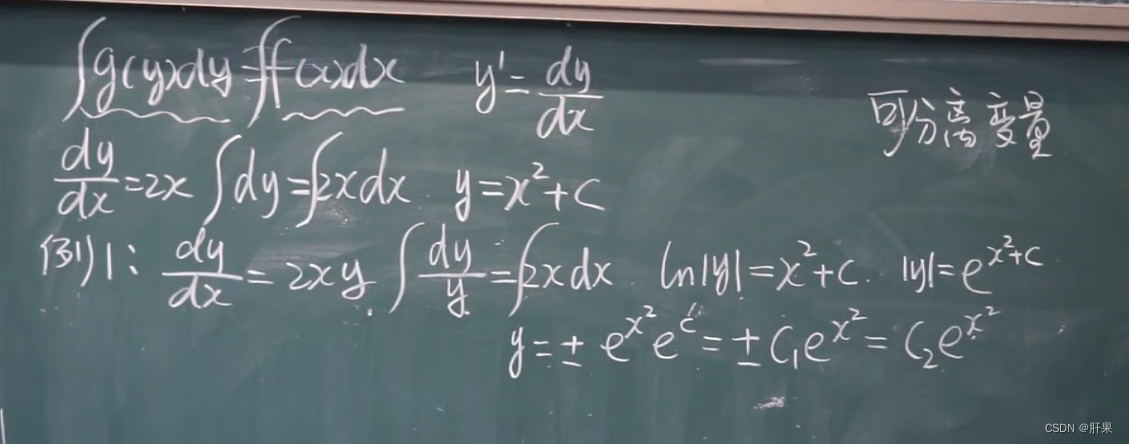 ∫g(y)dy=∫f(x)dx y'=dy/dx
可分离变量
dy/dx=2x ∫dy=∫2xdx y=x²+c
例1: dy/dx=2xy ∫dy/y=∫2xdx ln|y|=x²+c. |y|=e^{x²+c}
y=±e^{x²}e^{c}=±C₁e^{x²}=C₂e^{x²}
CSDN @肝果